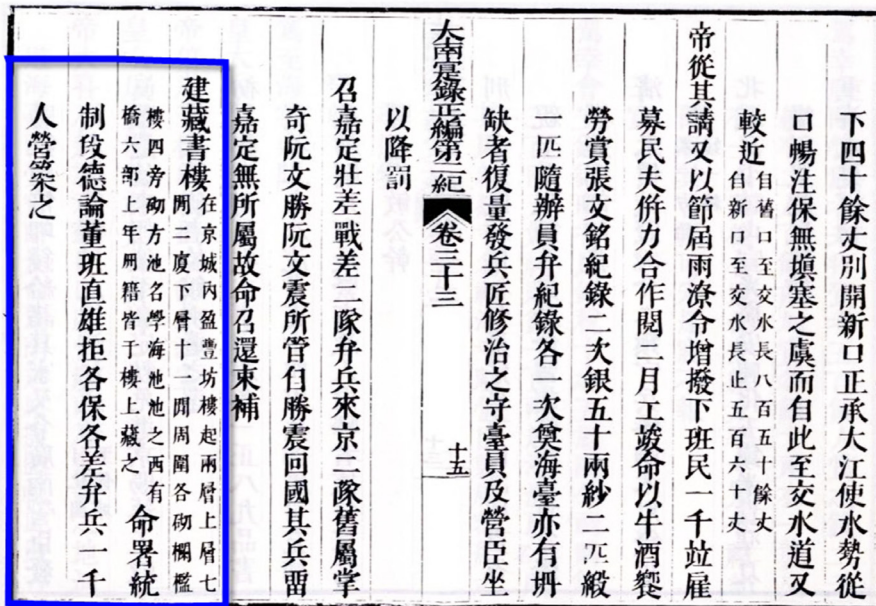 下四十餘丈別開新口正承大江使水勢從
口暢注保無塡塞之虞而自此至交水道又
較近自舊口至交水長八百五十餘丈
自新口至交水長止五百六十丈
帝從其請又以節屆雨潦令增撥下班民一千竝雇
募民夫併力合作閱二月工竣命以牛酒饗
勞賞張文銘紀錄二次銀五十兩紗二匹緞
一匹隨辦員弁紀錄各一次奠海臺亦有坍
缺者復量發兵匠修治之守臺員及營臣坐
大南寔錄正編第二紀 卷三十三 十五
以降罰
召嘉定壯差戰差二隊弁兵來京二隊舊屬掌
奇阮文勝阮文震所管自勝震回國其兵畱
嘉定無所屬故命召還東補
建藏書樓在京城內盈豐坊樓起兩層上層七
間二廈下層十一間周圍各砌欄檻
樓四旁砌方池名學海池池之西有
橋六部上年冊籍皆于樓上藏之命署統
制段德論董班直雄拒各保各差弁兵一千
人營築之